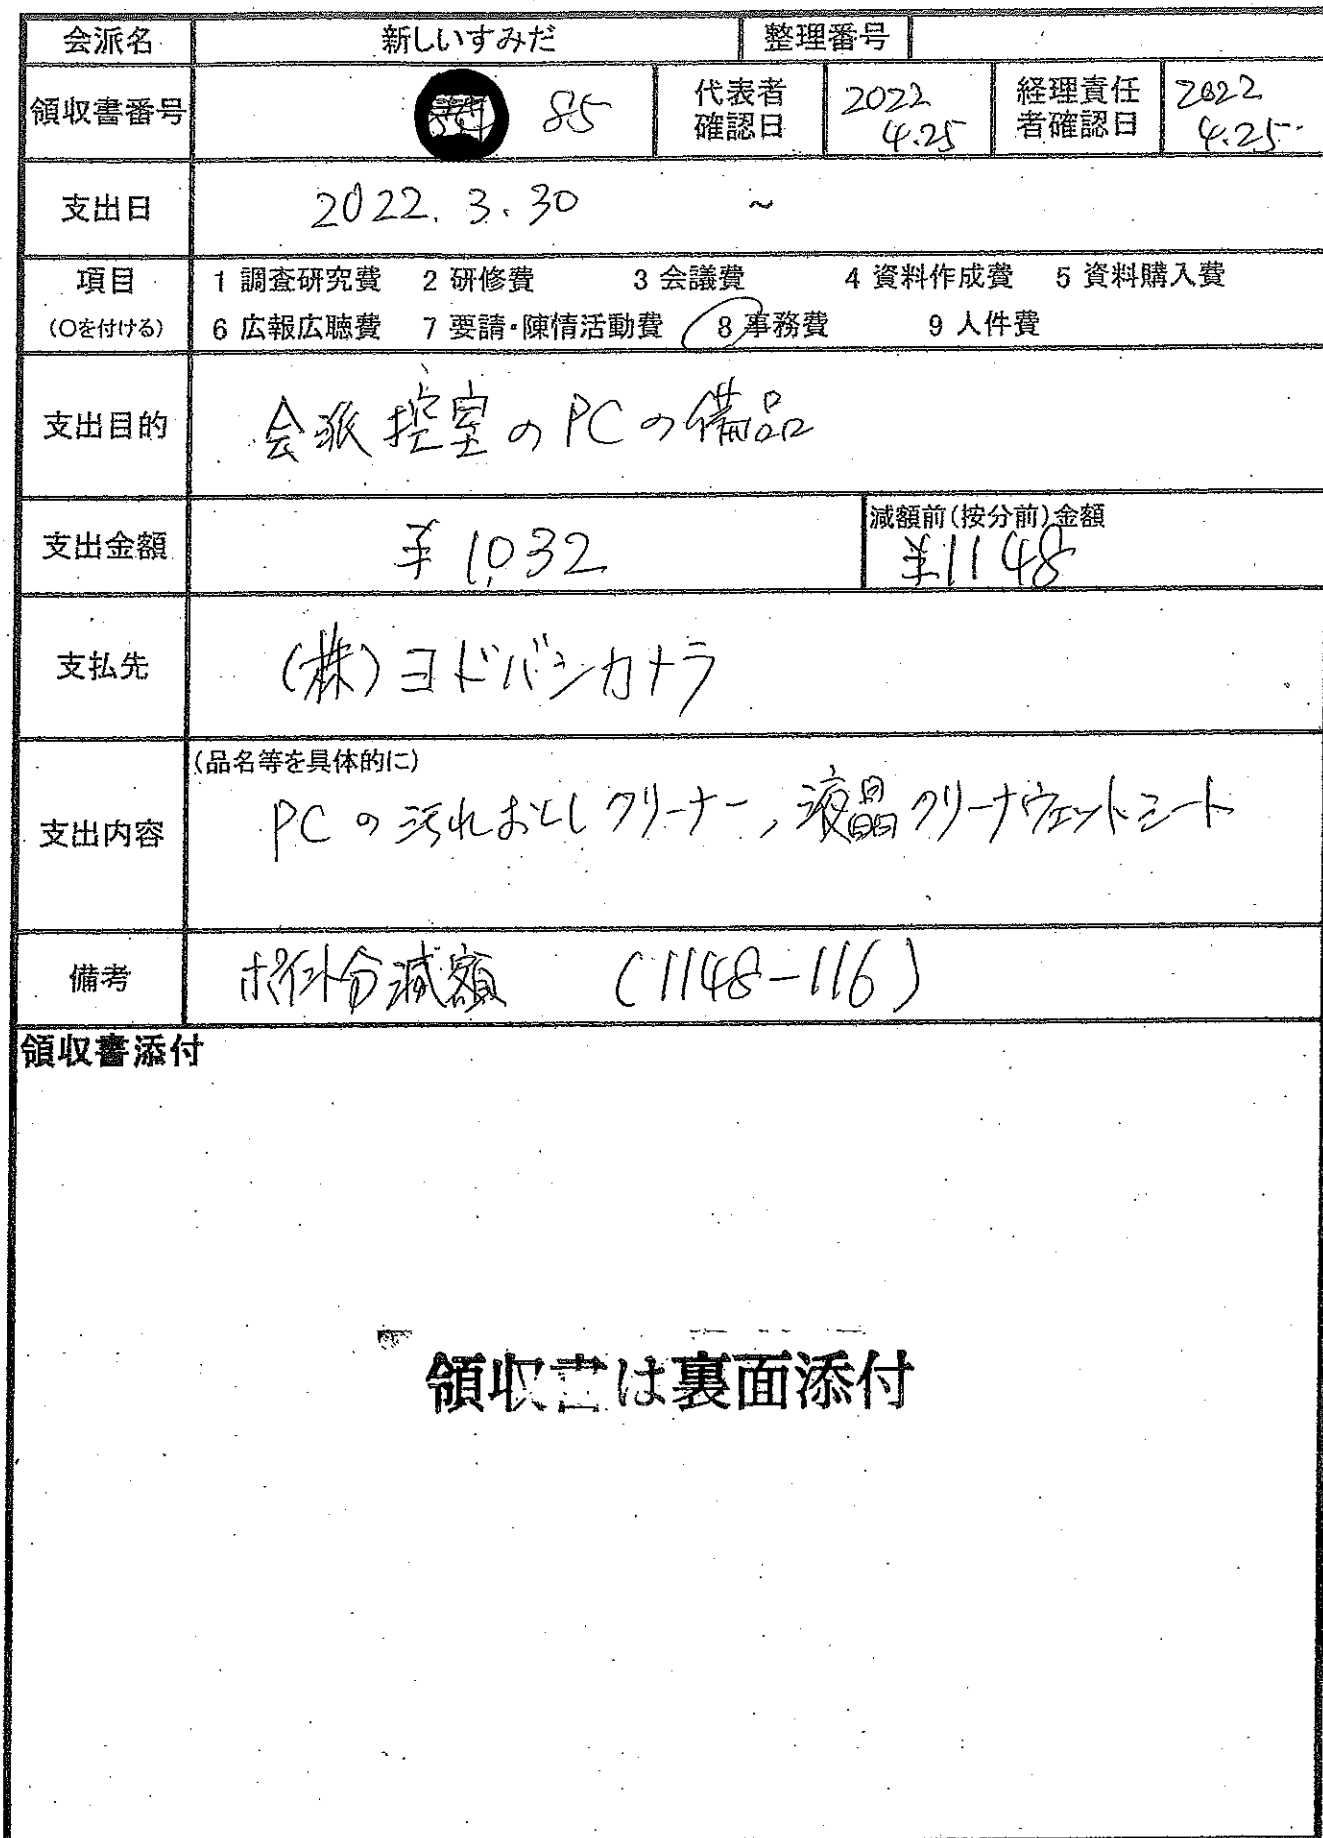 会派名 新しいすみだ 整理番号
領収書番号 85 代表者確認日 2022 4.25 経理責任者確認日 2022 4.25
支出日 2022.3.30 ~
項目 1 調査研究費 2 研修費 3 会議費 4 資料作成費 5 資料購入費
(○を付ける) 6 広報広聴費 7 要請・陳情活動費 8 事務費 9 人件費
支出目的 会派控室のPCの備品
減額前(按分前)金額
支出金額 ¥1,032 ¥1148
支払先 (株)ヨドバシカメラ
(品名等を具体的に)
支出内容 PCの汚れおとしクリーナー、液晶クリーナウェットシート
備考 ポイント分減額 (1148-116)
領収書添付
領収書は裏面添付